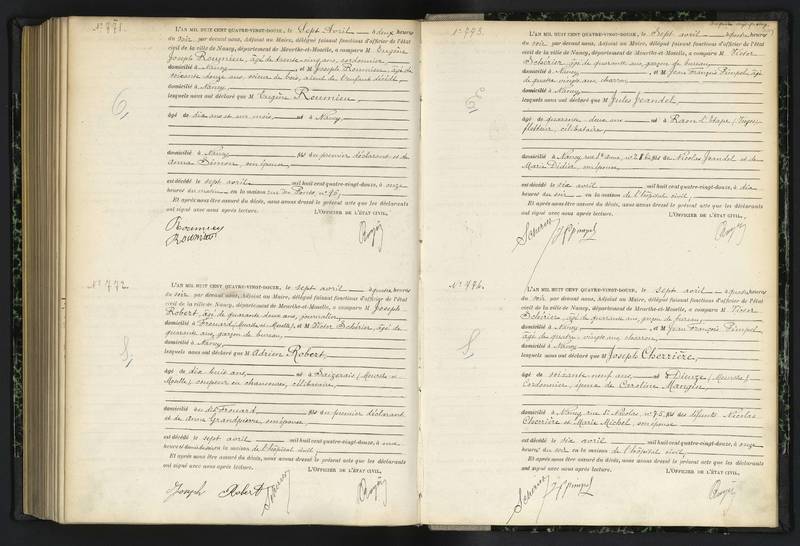 N° 771.
L'AN MIL HUIT CENT QUATRE-VINGT-DOUZE, le sept avril à deux heures
du soir par devant nous, Adjoint au Maire, délégué faisant fonctions d'officier de l'état
civil de la ville de Nancy, département de Meurthe-et-Moselle, a comparu M Eugène
Joseph Roumieu, âgé de trente-cinq ans, cordonnier,
domicilié à Nancy, et M Joseph Roumieu, âgé de
soixante douze ans, aïeul de l'enfant décédé,
domicilié à Nancy,
lesquels nous ont déclaré que M Eugène Roumieu,
âgé de dix ans et un mois, né à Nancy,
domicilié à Nancy, fils du premier déclarant et de
Anna Simon, son épouse,
est décédé le sept avril mil huit cent quatre-vingt-douze, à onze
heures du matin en la maison rue des Ponts, n° 76,
Et après nous être assuré du décès, nous avons dressé le présent acte que les déclarants
ont signé avec nous après lecture. L'OFFICIER DE L'ÉTAT CIVIL,
Roumieu
Roumieu
N° 772.
L'AN MIL HUIT CENT QUATRE-VINGT-DOUZE, le sept avril à quatre heures
du soir par devant nous, Adjoint au Maire, délégué faisant fonctions d'officier de l'état
civil de la ville de Nancy, département de Meurthe-et-Moselle, a comparu M Joseph
Robert, âgé de quarante deux ans, journalier,
domicilié à Frouard (Meurthe et Moselle), et M Victor Schérier, âgé de
quarante ans, garçon de bureau,
domicilié à Nancy,
lesquels nous ont déclaré que M Adrien Robert,
âgé de dix huit ans, né à Saizerais (Meurthe et
Moselle), coupeur en chaussures, célibataire,
domicilié au dit Frouard, fils du premier déclarant
et de Anne Grandpierre, son épouse,
est décédé le sept avril mil huit cent quatre-vingt-douze, à une
heure en la maison de l'hôpital civil,
Et après nous être assuré du décès, nous avons dressé le présent acte que les déclarants
ont signé avec nous après lecture. L'OFFICIER DE L'ÉTAT CIVIL,
Joseph Robert
N° 773.
L'AN MIL HUIT CENT QUATRE-VINGT-DOUZE, le sept avril à quatre heures
du soir par devant nous, Adjoint au Maire, délégué faisant fonctions d'officier de l'état
civil de la ville de Nancy, département de Meurthe-et-Moselle, a comparu M Victor
Schérier, âgé de quarante ans, garçon de bureau,
domicilié à Nancy, et M Jean François Pimpel, âgé
de quatre vingts ans, charron,
domicilié à Nancy,
lesquels nous ont déclaré que M Jules Jeandel,
âgé de quarante-deux ans né à Raon l'Etape (Vosges)
célibataire,
domicilié à Nancy, rue fils de Nicolas Jeandel et de
Marie Didier, son épouse,
est décédé le six avril mil huit cent quatre-vingt-douze, à dix
heures du soir en la maison de l'hôpital civil,
Et après nous être assuré du décès, nous avons dressé le présent acte que les déclarants
ont signé avec nous après lecture. L'OFFICIER DE L'ÉTAT CIVIL,
N° 774.
L'AN MIL HUIT CENT QUATRE-VINGT-DOUZE, le sept avril à quatre heures
du soir par devant nous, Adjoint au Maire, délégué faisant fonctions d'officier de l'état
civil de la ville de Nancy, département de Meurthe-et-Moselle, a comparu M Victor
Schérier, âgé de quarante ans, garçon de bureau,
domicilié à Nancy, et M Jean François Pimpel,
âgé de quatre vingts ans, charron,
domicilié à Nancy,
lesquels nous ont déclaré que M Joseph Cherrière,
âgé de soixante neuf ans, né à Dieuze (Meurthe),
cordonnier, époux de Caroline Mangin,
domicilié à Nancy, rue St Nicolas, n° 75, fils des défunts Nicolas
Cherrière et Marie Michel, son épouse,
est décédé le six avril mil huit cent quatre-vingt-douze, à onze
heures du soir en la maison de l'hôpital civil,
Et après nous être assuré du décès, nous avons dressé le présent acte que les déclarants
ont signé avec nous après lecture. L'OFFICIER DE L'ÉTAT CIVIL,